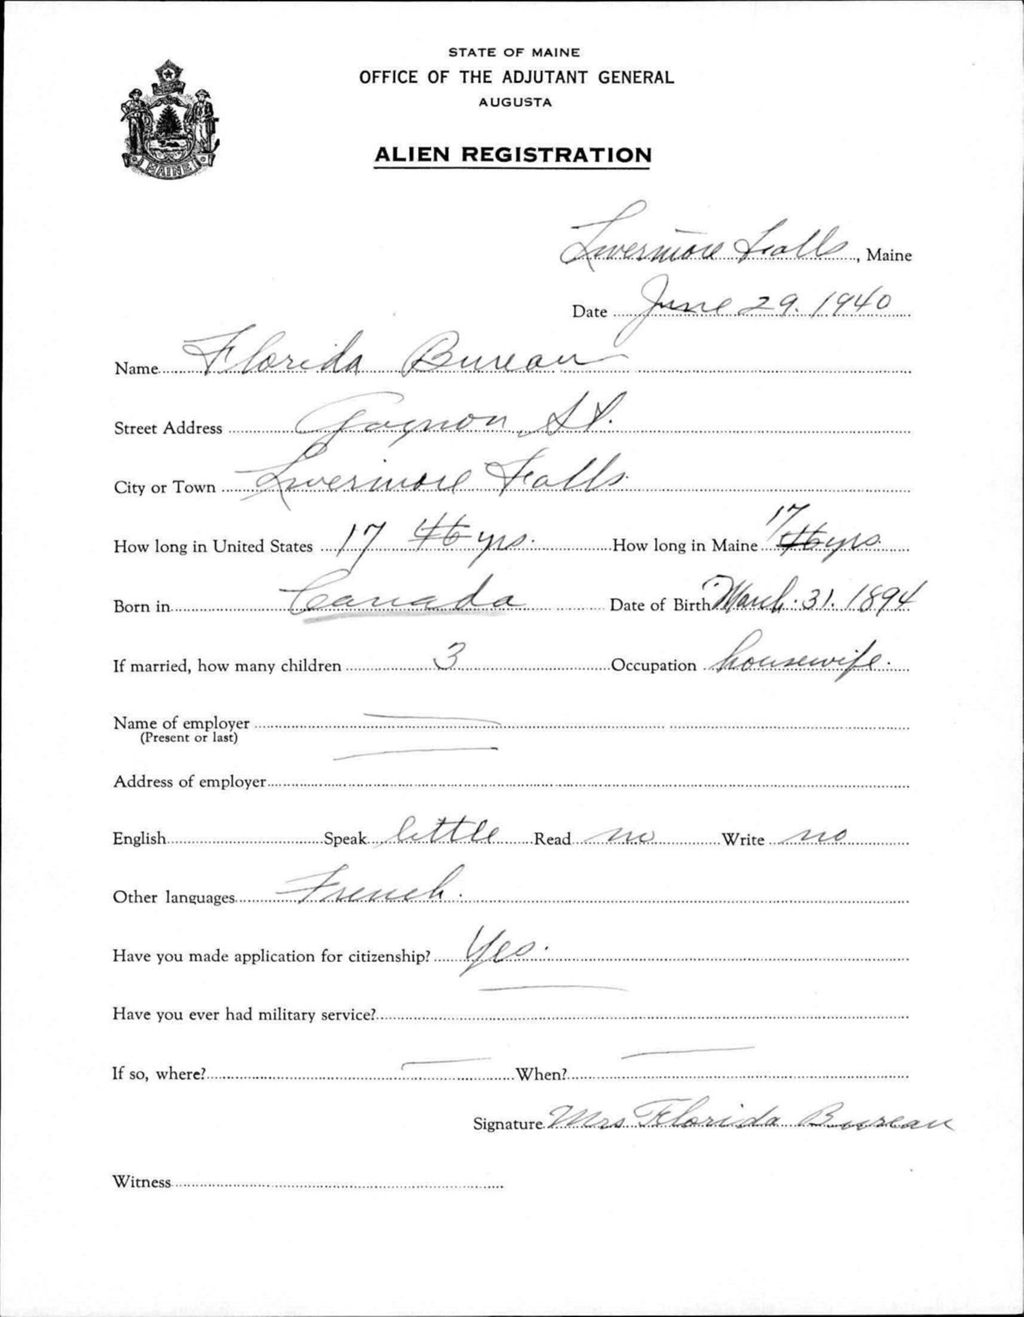 STATE OF MAINE
OFFICE OF THE ADJUTANT GENERAL
AUGUSTA
ALIEN REGISTRATION
MAINE
Livermore Falls, Maine
Date June 29. 1940
Name Florida Bureau
Street Address Gagnon St.
City or Town Livermore Falls
How long in United States 17 46 yrs. How long in Maine 17 46 yrs.
Born in Canada Date of Birth March 31. 1894
If married, how many children 3 Occupation housewife.
Name of employer
(Present or last)
Address of employer
English Speak little Read no Write no
Other languages French.
Have you made application for citizenship? Yes.
Have you ever had military service?
If so, where? When?
Signature Mrs Florida Bureau
Witness